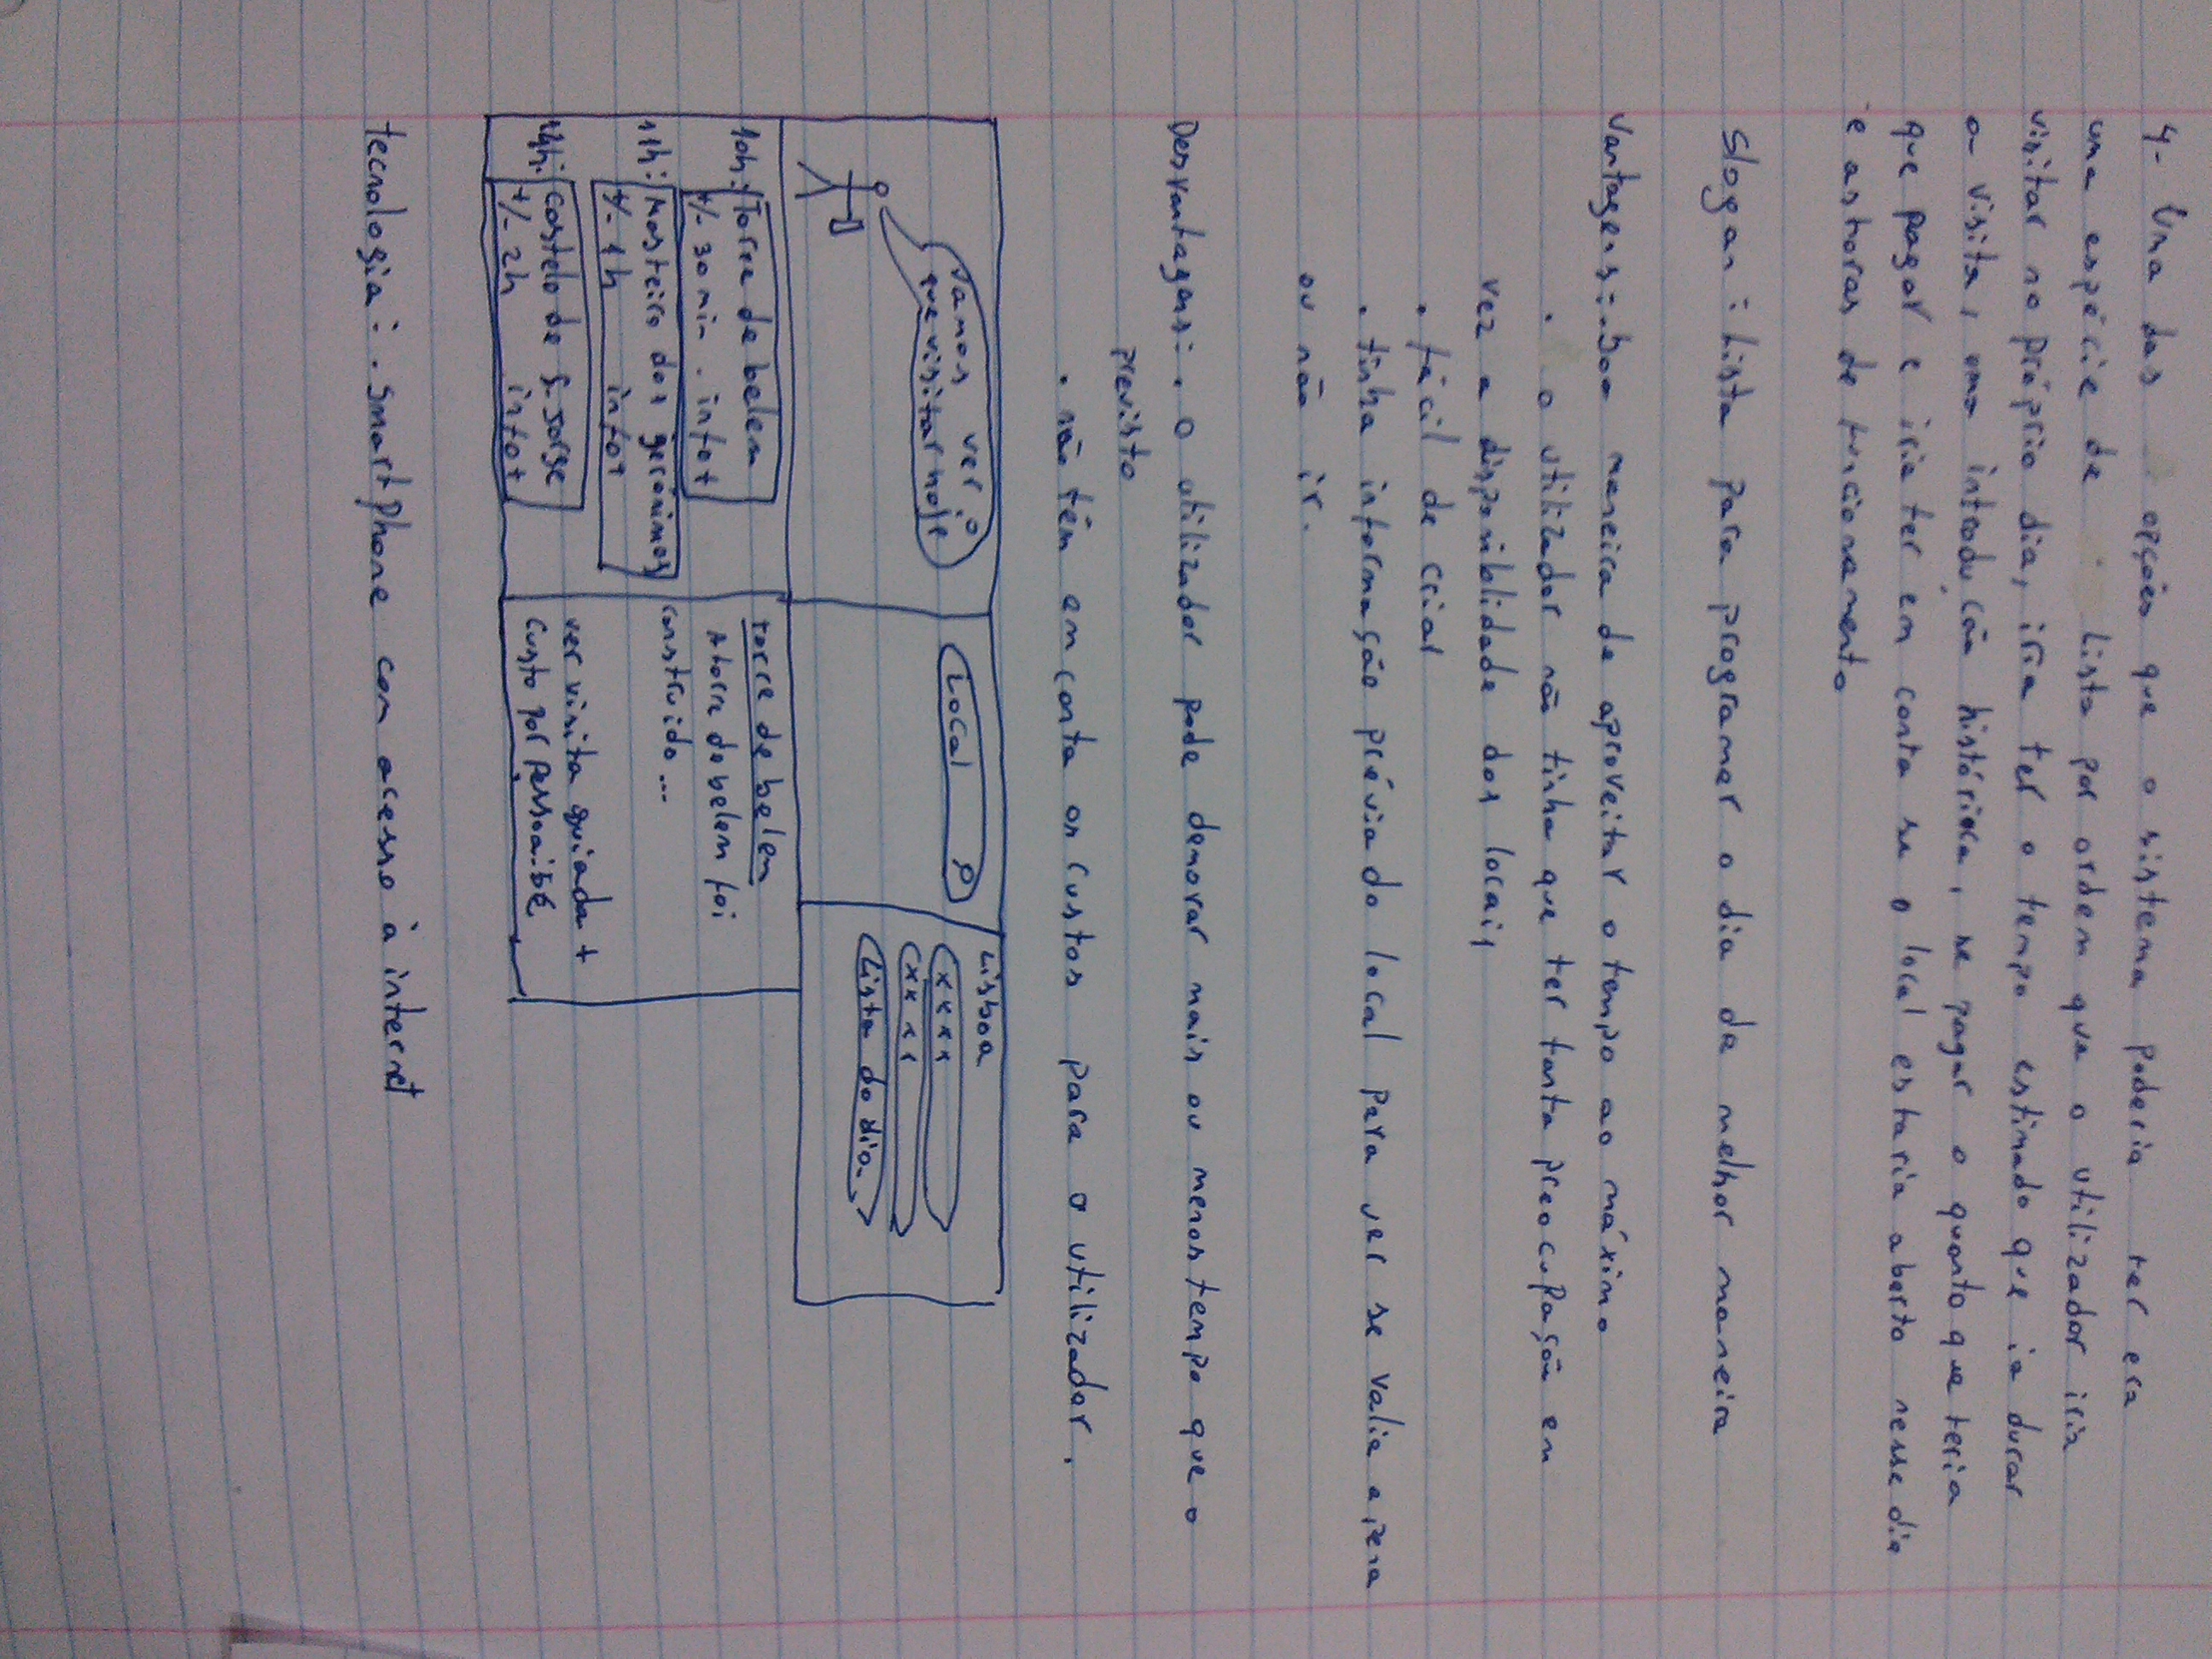 4- Uma das opções que o sistema poderia ter era
uma espécie de lista por ordem que o utilizador iria
visitar no próprio dia, iria ter o tempo estimado que ia durar
a visita, uma introdução histórica, se pagar o quanto que teria
que pagar e iria ter em conta se o local estaria aberto nesse dia
e as horas de funcionamento
Slogan: Lista para programar o dia da melhor maneira
Vantagens: . boa maneira de aproveitar o tempo ao máximo
. o utilizador não tinha que ter tanta preocupação em
vez a disponibilidade dos locais
. fácil de criar
. tinha informação prévia do local para ver se valia a pena
ou não ir.
Desvantagens: . o utilizador pode demorar mais ou menos tempo que o
previsto
. não têm em conta os custos para o utilizador.
Vamos ver o
que visitar hoje
Local
Lisboa
xxxx
xxxx
Lista do dia
10h: Torre de belem
+/- 30 min . info +
11h: Mosteiro dos gerónimos
+/- 1h info+
14h: Castelo de S. Jorge
+/- 2h info+
torre de belem
A torre de belem foi
construido ...
ver visita guiada +
Custo por pessoa: 6€
tecnologia: . Smartphone com acesso à internet